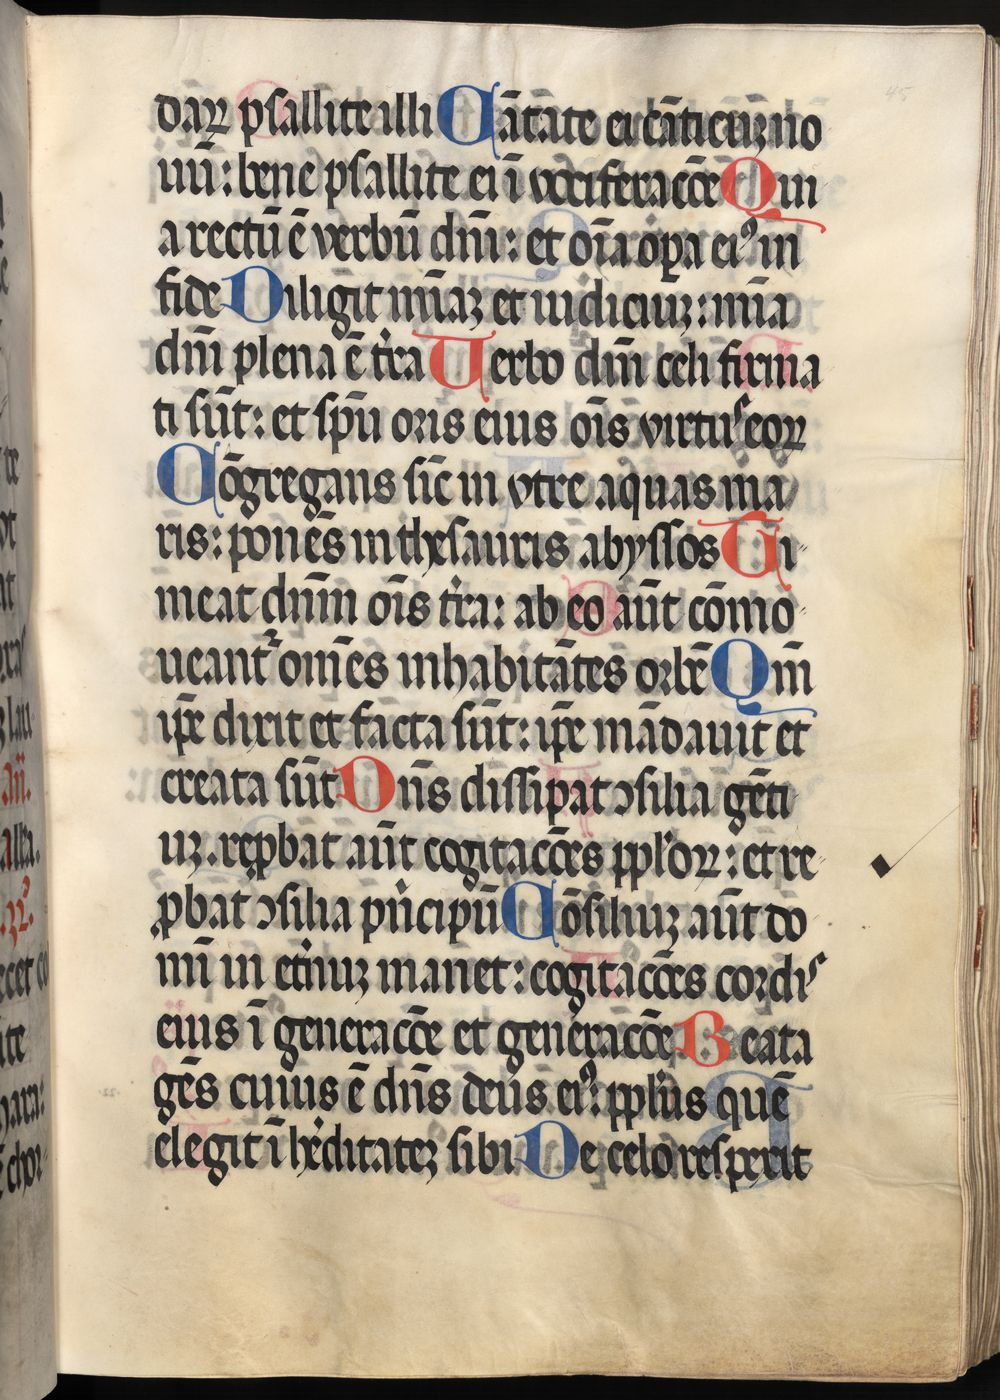 daꝝ psallite illi Cātate ei cāticuꝫ no
uū: bene psallite ei ī vociferacōe Qui
a rectū ē verbū dn̄i: et oīa opa eiꝰ in
fide Diligit mīaꝫ et iudiciuꝫ: mīa
dn̄i plena ē t̄ra Verbo dn̄i celi firma
ti sūt: et sp̄u oris eius oīs virtus eoꝝ
Cōgregans sīc in vtre aquas ma
ris: ponēs in thesauris abyssos Ti
meat dn̄m oīs t̄ra: ab eo aūt cōmo
ueantʳ om̄es inhabitātes orbē Qm̄
ip̄e dixit et facta sūt: ip̄e mādauit et
creata sūt Dn̄s dissipat ↄsilia gēti
uꝫ. reꝓbat aūt cogitacōes pp̄loꝝ: et re
ꝓbat ↄsilia pͥncipū Cōsiliuꝫ aūt do
mī in et̄nuꝫ manet: cogitacōes cordis
eius ī generacōe et generacōe Beata
gēs cuius ē dn̄s deus eiꝰ: pp̄lus quē
elegit ī h̄editateꝫ sibi De celo respexit
ce
te
ot
at
lau
Añ.
alla.
cet co
ite
hara:
chor
45